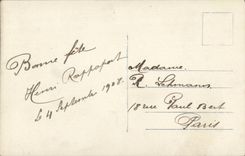 Bonne fête
Henri Rappaport
le 4 Septembre 1908.
Madame
R. Lehmann
18 rue Paul Bert
Paris